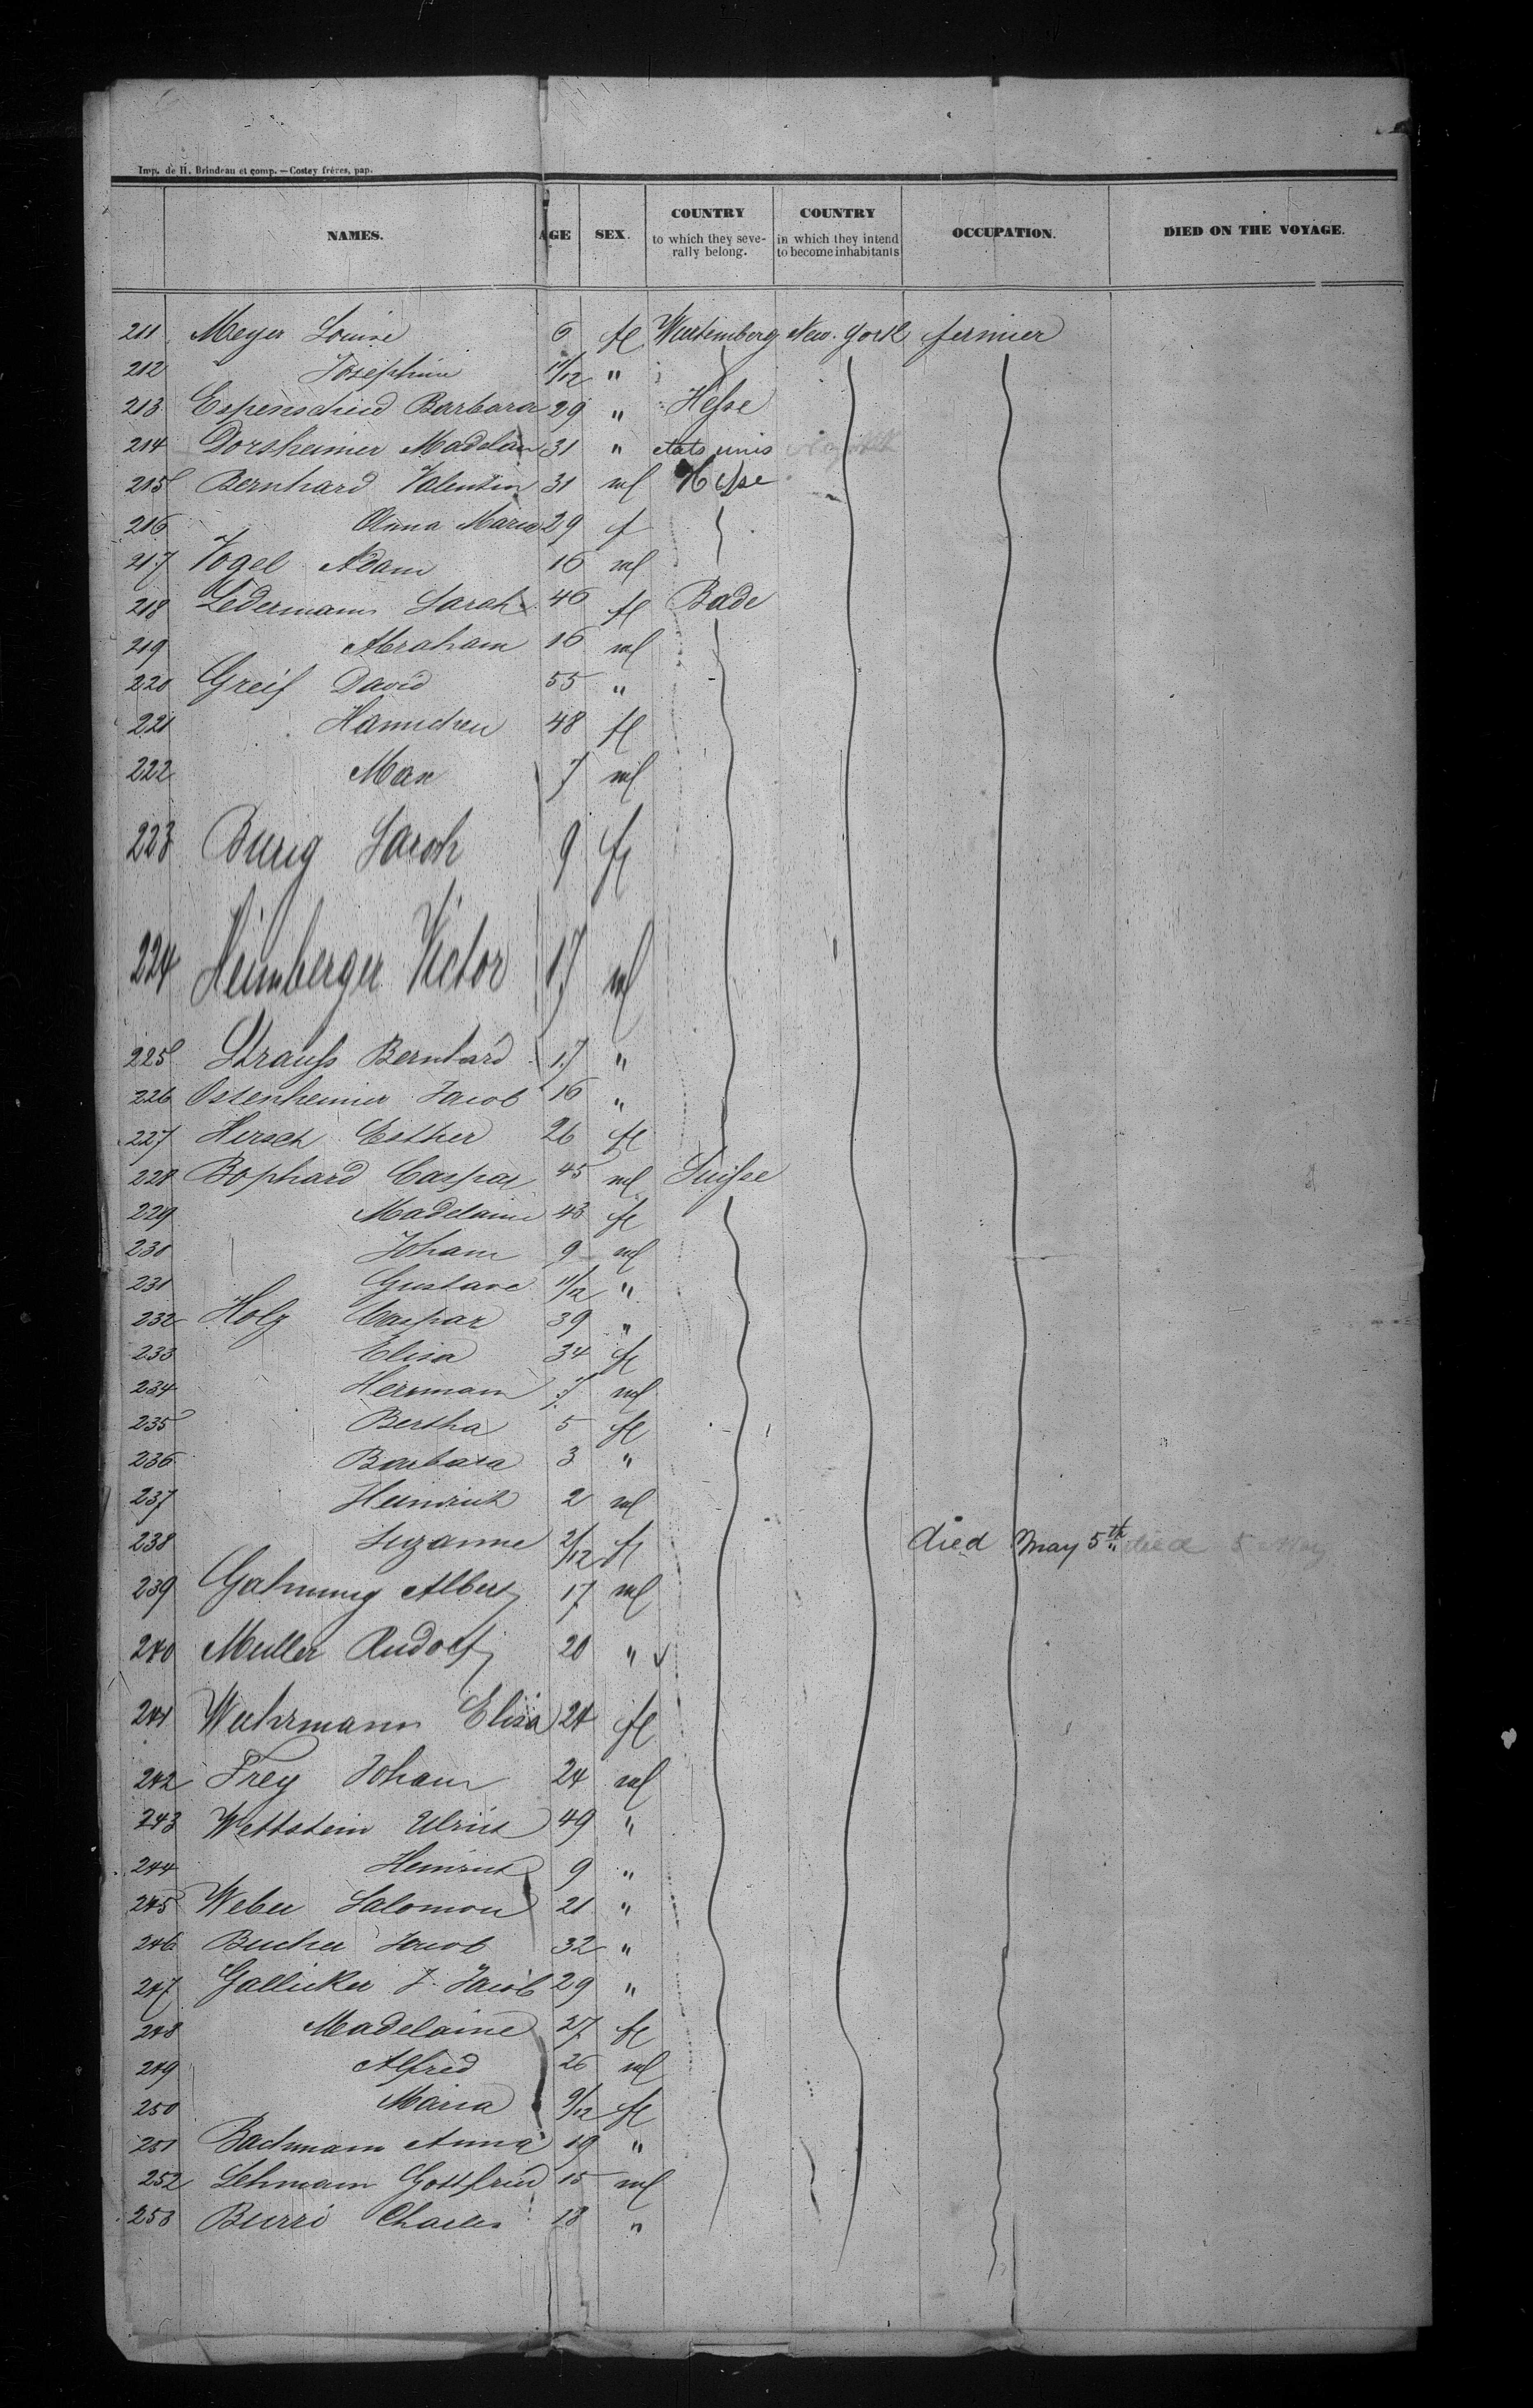 Imp. de H. Brindeau et comp. — Costey frères, pap.
NAMES. AGE SEX. COUNTRY to which they severally belong. COUNTRY in which they intend to become inhabitants OCCUPATION. DIED ON THE VOYAGE.
211 Meyer Louise 6 fl Wurtemberg New-York fermier
212 Josephine 11/12 "
213 Espenschied Barbara 29 " Hesse
214 Dorsheimer Madelain 31 " etats unis
215 Bernhard Valentin 31 ml Hesse
216 Anna Maria 29 f
217 Vogel Adam 16 ml
218 Ledermann Sarah 46 fl Bade
219 Abraham 16 ml
220 Greif David 55 "
221 Hannchen 48 fl
222 Max 7 ml
223 Burig Sarah 9 fl
224 Heimberger Victor 17 ml
225 Strauss Bernhard 17 "
226 Ostenheimer Jacob 16 "
227 Hirsch Esther 26 fl
228 Bophard Caspar 45 ml Suisse
229 Madelaine 43 fl
230 Johann 9 ml
231 Gustave 11/12 "
232 Holz Caspar 39 "
233 Elisa 34 fl
234 Hermann 7 ml
235 Bertha 5 fl
236 Barbara 3 "
237 Heinrich 2 ml
238 Suzanne 2/12 fl died May 5th died 5 May
239 Gahnung Albert 17 ml
240 Muller Rudolf 20 " v
241 Wuhrmann Elisa 24 fl
242 Frey Johann 24 ml
243 Wettstein Ulrich 49 "
244 Heinrich 9 "
245 Weber Salomon 21 "
246 Bucher Jacob 32 "
247 Gallicker J. Jacob 29 "
248 Madelaine 27 fl
249 Alfred 26 ml
250 Maria 9/12 fl
251 Bachmann Anna 19 "
252 Lehmann Gottfried 15 ml
253 Burri Charles 18 "